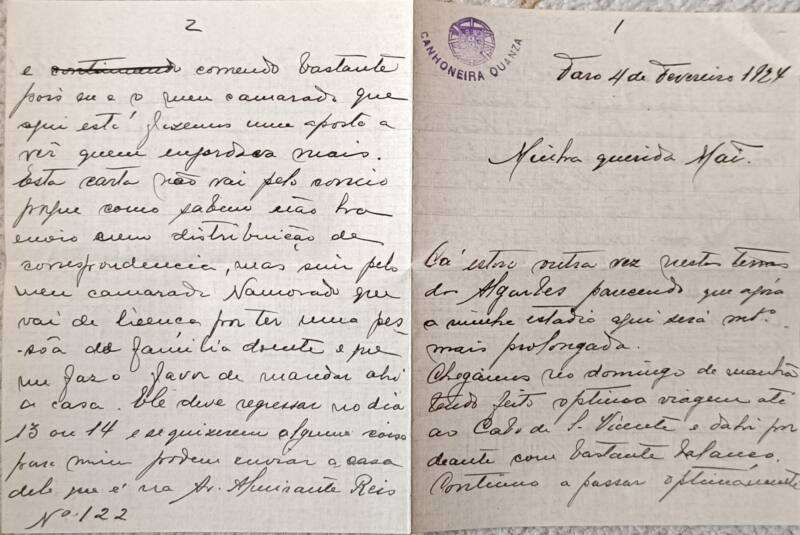 1
CANHONEIRA QUANZA
Faro 4 de Fevereiro 1924
Minha querida Mãi.
Cá estou outra vez nestas terras
dos Algarves parecendo que agora
a minha estadia aqui será mtº.
mais prolongada.
Chegámos no domingo de manhã
tendo feito optima viagem até
ao Cabo de S. Vicente e dahi por
deante com bastante balanço.
Continuo a passar optimamente
2
e continuando comendo bastante
pois eu e o meu camarada que
aqui está fizemos uma aposta a
vêr quem engordava mais.
Esta carta não vai pelo correio
porque como sabem não ha
envio nem distribuição de
correspondencia, mas sim pelo
meu camarada Namorado que
vai de licença por ter uma pes-
-sôa de familia doente e que
me faz o favor de mandar ahi
a casa. Ele deve regressar no dia
13 ou 14 e se quizerem alguma coisa
para mim podem enviar a casa
dele que é na Av. Almirante Reis
Nº. 122